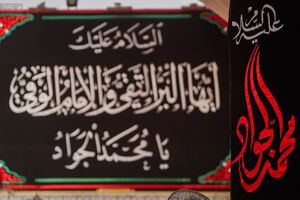 السَّلامُ عَلَيْكَ
أيُّها البَرُّ التَّقِيُّ وَالإمامُ الوَفِيُّ
يا مُحَمَّدُ الجَوادُ
السلام عليك
محمد الجواد